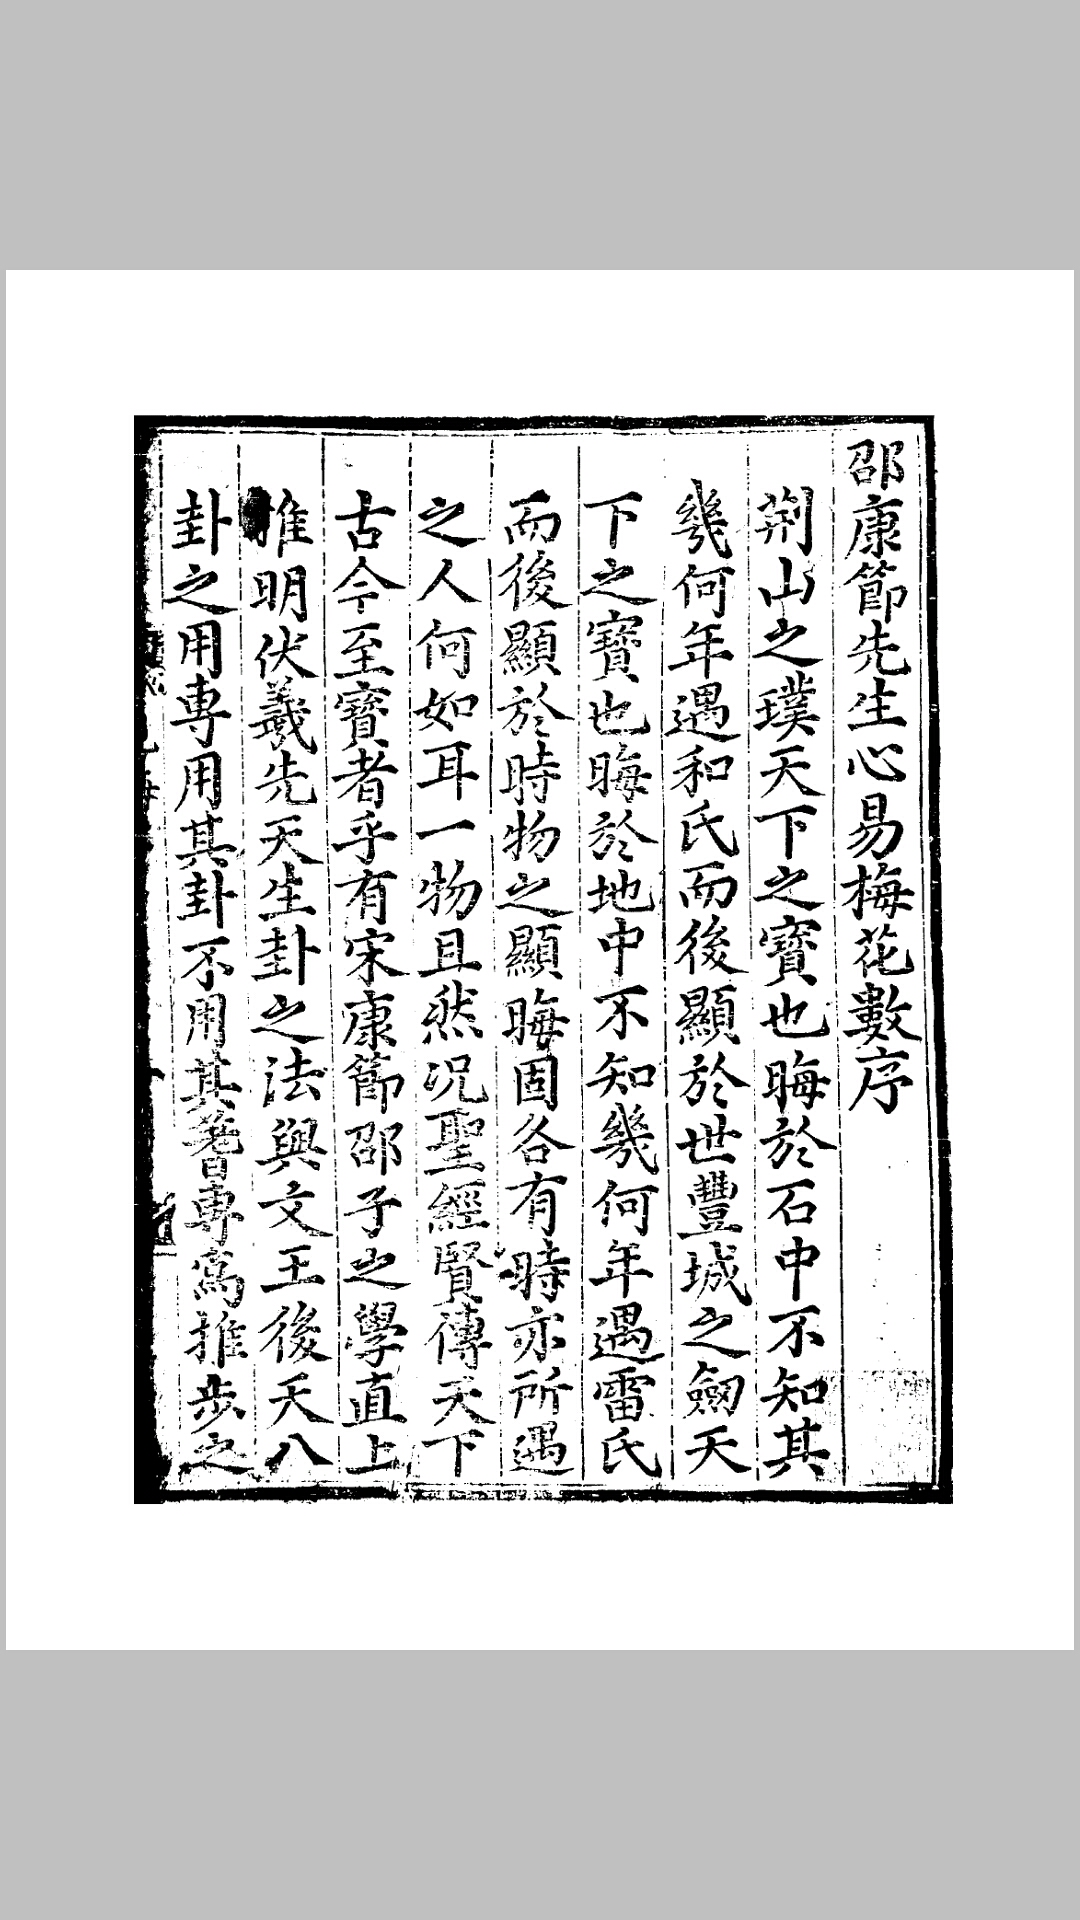 邵康節先生心易梅花數序
荆山之璞天下之寳也晦於石中不知其
幾何年遇和氏而後顯於世豐城之劔天
下之寳也晦於地中不知幾何年遇雷氏
而後顯於時物之顯晦固各有時亦所遇
之人何如耳一物且然况聖經賢傳天下
古今至寳者乎有宋康節邵子之學直上
推明伏羲先天生卦之法與文王後天八
卦之用專用其卦不用其蓍專爲推步之